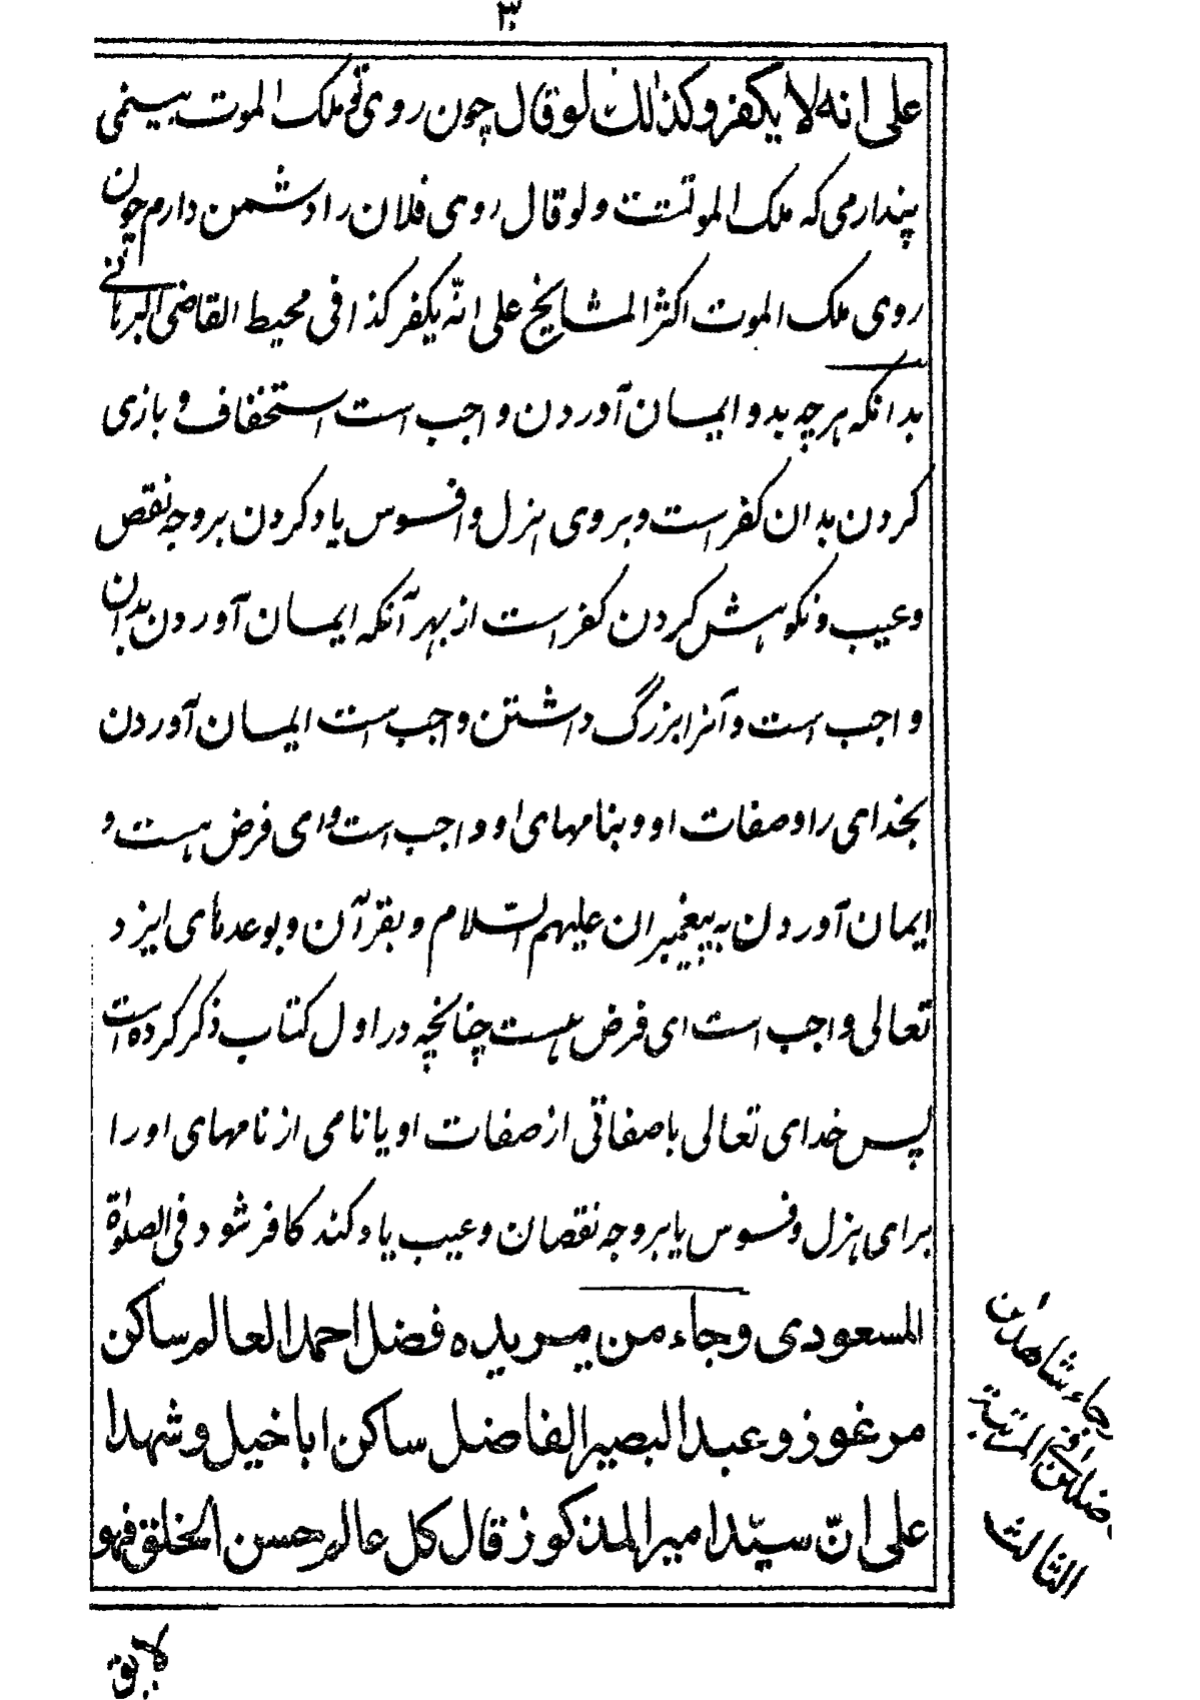 ۳
علی انه لا یکفر وکذالک لو قال چون روی تو ملک الموت بینمی
پندارمی که ملک الموتست ولو قال روی فلان را دشمن دارم چون
روی ملک الموت اکثر المشایخ علی انّه یکفر کذا فی محیط القاضی البرهانی
بدانکه هرچه بدو ایمان آوردن واجب است استخفاف و بازی
کردن بدان کفر است و بروی هزل و افسوس یاد کردن بر وجه نقص
و عیب و نکوهش کردن کفر است از بهر آنکه ایمان آوردن بدان
واجب است و آنرا بزرگ داشتن واجب است ایمان آوردن
بخدای را و صفات او و بنامهای او واجب است و ای فرض هست و
ایمان آوردن به پیغمبران علیهم السّلام و بقرآن و بوعدهای ایزد
تعالی واجب است ای فرض هست چنانچه در اول کتاب ذکر کرده است
پس خدای تعالی با صفاتی از صفات او یا نامی از نامهای او را
برای هزل و فسوس یا بر وجه نقصان و عیب یاد کند کافر شود فی الصلوٰة
المسعودی وجاء من یریده فضل احمد العالم ساکن
مرغوز و عبد البصیر الفاضل ساکن اباخیل وشهدا
علی انّ سیّد امیر المذکور قال کل عالم حسن الخلق فهو
وجاء شاهدان
فاضلان فی المرتبة
الثالث
لایق